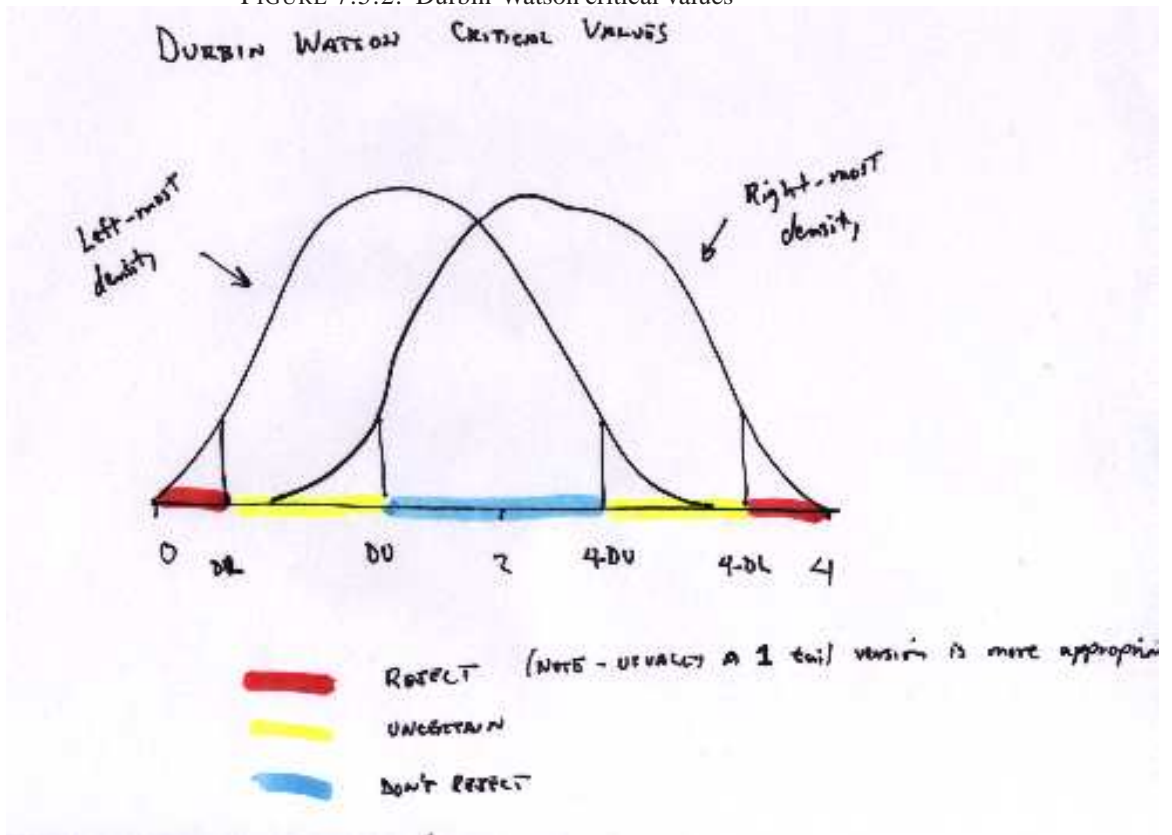 FIGURE 7.5.2. Durbin-Watson critical values
DURBIN WATSON CRITICAL VALUES
Left-most
density
Right-most
density
0 DL DU 2 4-DU 4-DL 4
REJECT (NOTE - USUALLY A 1 tail version is more appropri
UNCERTAIN
DON'T REJECT